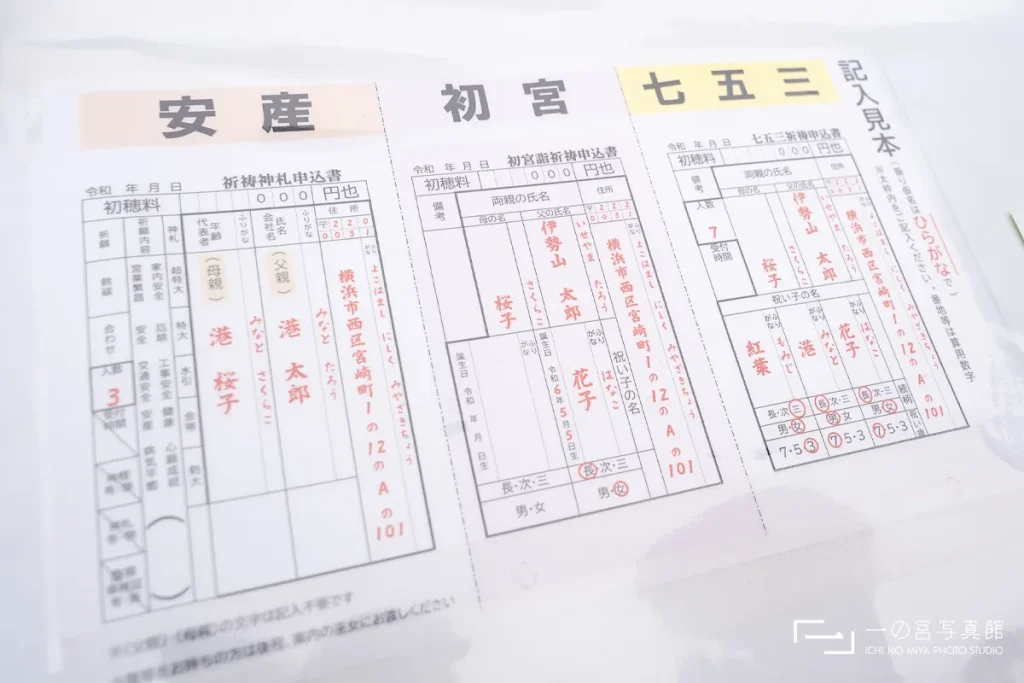 記入見本
(振り仮名はひらがなで)
※太枠内をご記入ください。番地等は算用数字
七五三
七五三祈祷申込書
令和 年 月 日
初穂料 000 円也
備考
両親の氏名
住所
母の名
父の氏名
〒220
0031
よこはまし にしく みやざきちょう
横浜市西区宮崎町1の12のAの101
いせやま たろう
伊勢山 太郎
さくらこ
桜子
人数
7
受付時間
祝い子の名
ふりがな
はなこ
花子
ふりがな
みなと
港
ふりがな
もみじ
紅葉
続柄
長・次・三
長・次・三
長・次・三
男・女
男・女
男・女
祝い歳
7・5・3
7・5・3
7・5・3
初宮
初宮詣祈祷申込書
令和 年 月 日
初穂料 000 円也
備考
両親の氏名
住所
母の名
父の氏名
〒220
0031
よこはまし にしく みやざきちょう
横浜市西区宮崎町1の12のAの101
いせやま たろう
伊勢山 太郎
さくらこ
桜子
祝い子の名
ふりがな
はなこ
花子
誕生日 令和6年5月5日生
長・次・三
男・女
ふりがな
誕生日 令和 年 月 日生
長・次・三
男・女
安産
祈祷神札申込書
令和 年 月 日
初穂料 000 円也
住所
〒220
0031
よこはまし にしく みやざきちょう
横浜市西区宮崎町1の12のAの101
ふりがな
氏名
会社名
(父親)
みなと たろう
港 太郎
ふりがな
年齢
代表者
(母親)
みなと さくらこ
港 桜子
神札
超特大
特大
水引
祈願内容
家内安全
営業繁昌
厄除
安全
工事安全
交通安全
健康
安産
心願成就
病気平癒
祈願
合わせ
人数
3
受付時間
の文字は記入不要です
お持ちの方は後程、案内の巫女にお渡しください
一の宮写真館
ICHI NO MIYA PHOTO STUDIO